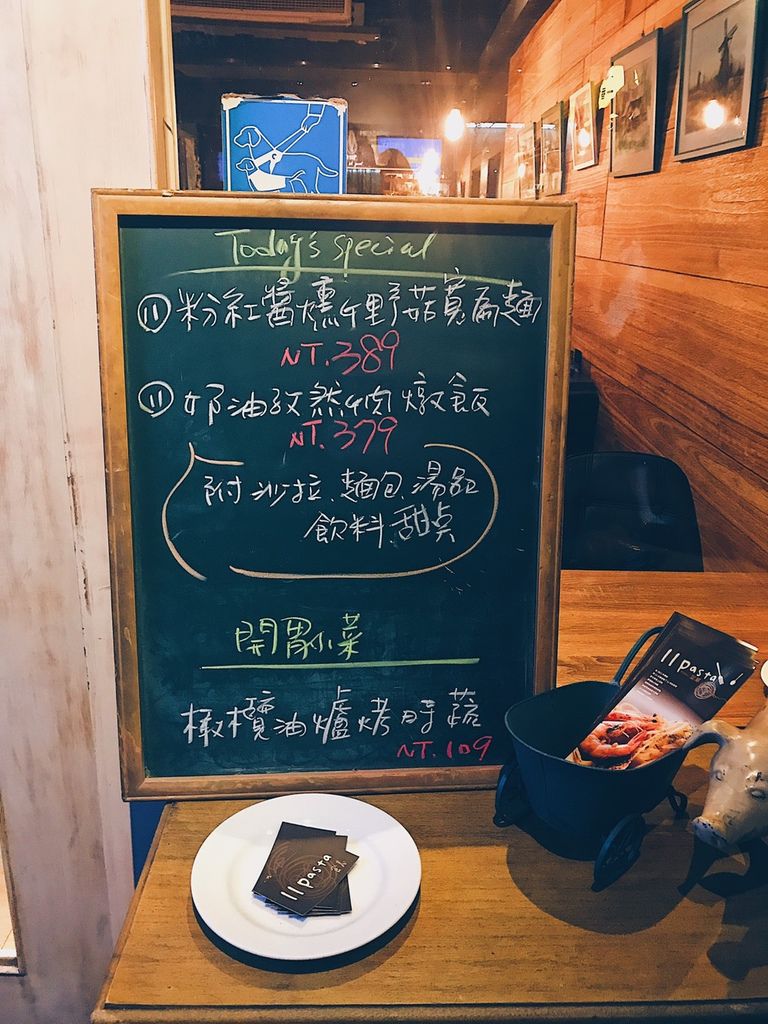 Today's special
⑪ 粉紅醬燻牛野菇寬扁麵
NT.389
⑪ 奶油孜然牛肉燉飯
NT.379
附沙拉、麵包、湯品
飲料、甜點
開胃小菜
橄欖油爐烤時蔬
NT.109
11pasta
11pasta